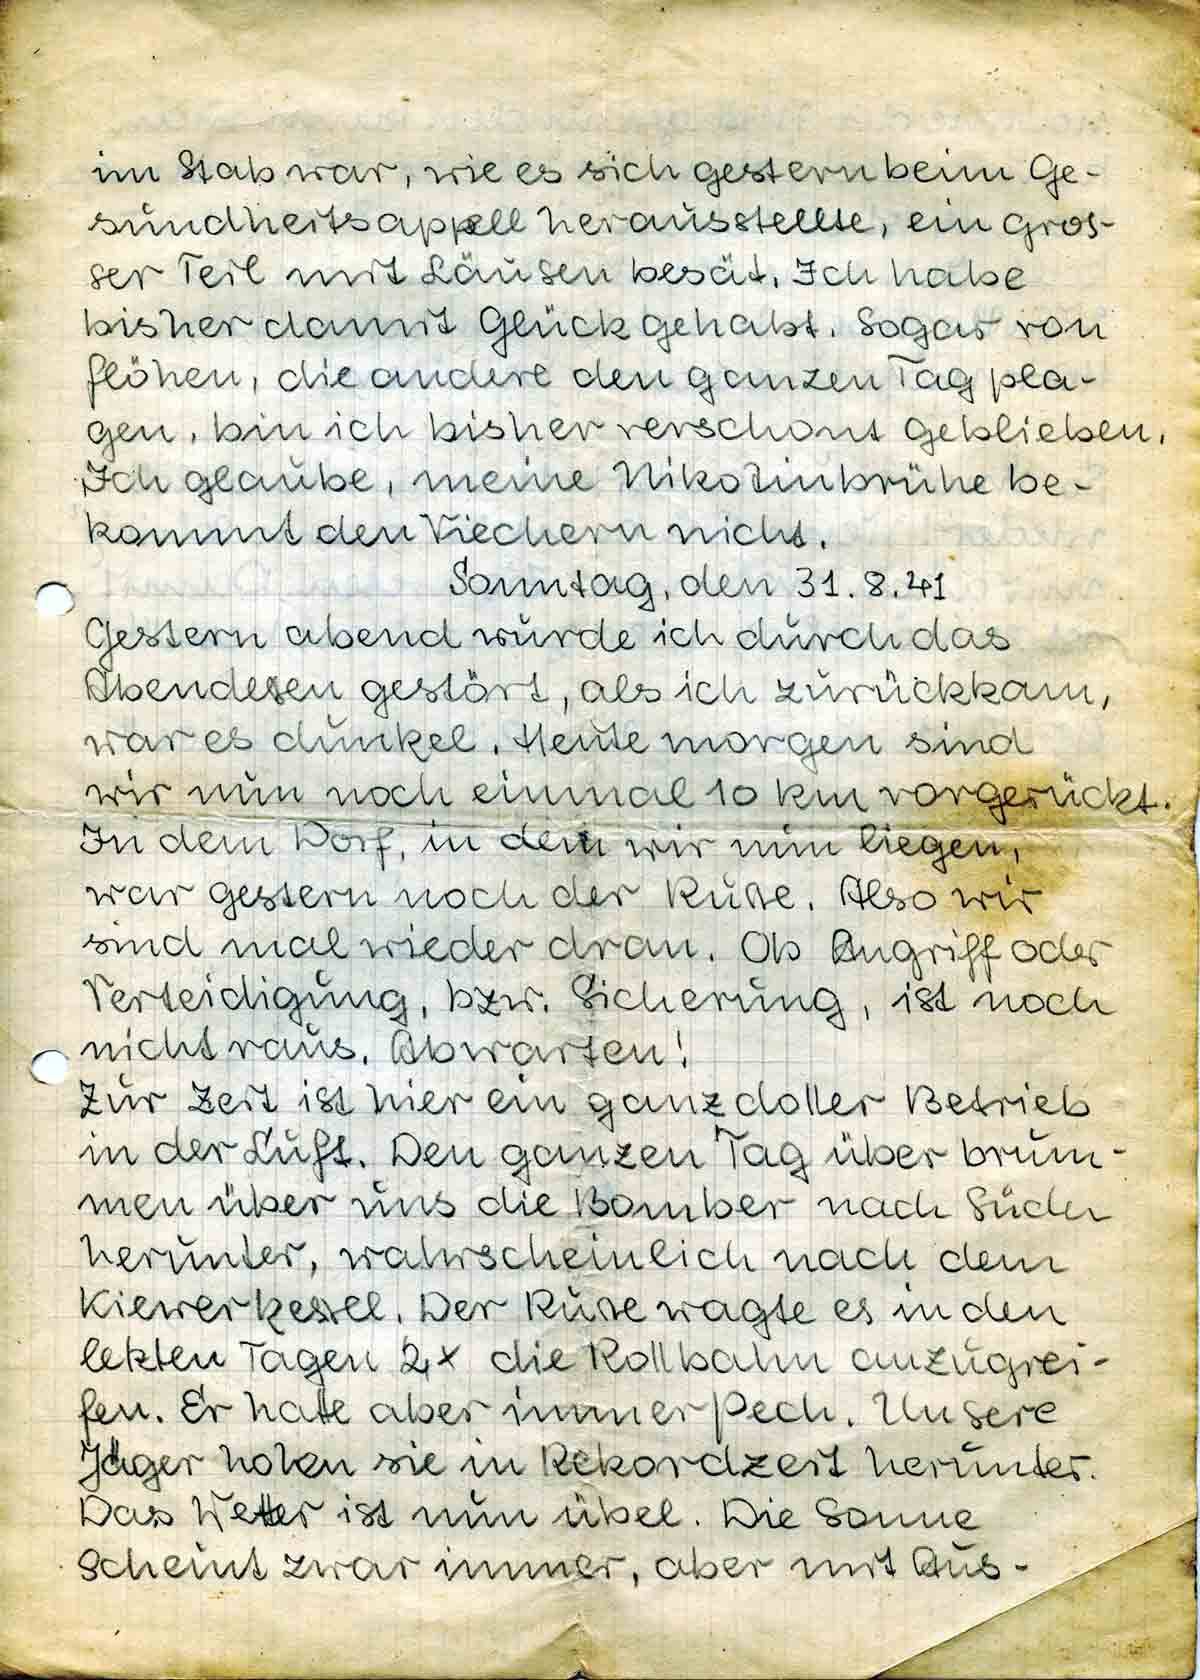 im Stab war, wie es sich gestern beim Ge-
sundheitsappell herausstellte, ein gros-
ser Teil mit Läusen besät. Ich habe
bisher damit Glück gehabt. Sogar von
Flöhen, die andere den ganzen Tag pla-
gen, bin ich bisher verschont geblieben.
Ich glaube, meine Nikotinbrühe be-
kommt den Viechern nicht.
Sonntag, den 31.8.41
Gestern abend wurde ich durch das
Abendesen gestört, als ich zurückkam,
war es dunkel. Heute morgen sind
wir nun noch einmal 10 km vorgerückt.
In dem Dorf, in dem wir nun liegen,
war gestern noch der Russe. Also wir
sind mal wieder dran. Ob Angriff oder
Verteidigung, bzw. Sicherung, ist noch
nicht raus. Abwarten!
Zur Zeit ist hier ein ganz doller Betrieb
in der Luft. Den ganzen Tag über brum-
men über uns die Bomber nach Süden
herunter, wahrscheinlich nach dem
Kiewerkessel. Der Russe wagte es in den
letzten Tagen 2x die Rollbahn anzugrei-
fen. Er hatte aber immer Pech. Unsere
Jäger holen sie in Rekordzeit herunter.
Das Wetter ist nun übel. Die Sonne
scheint zwar immer, aber mit Aus-